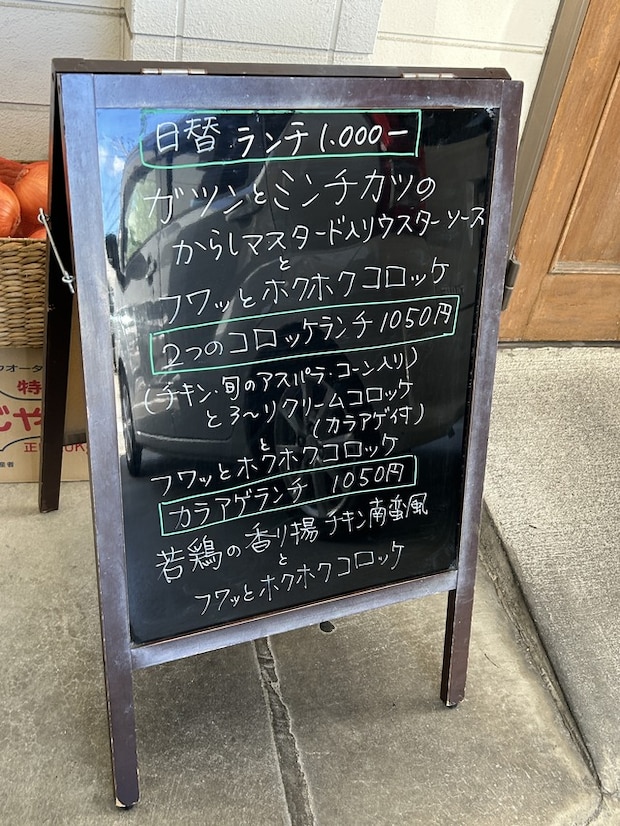 日替 ランチ 1.000ー
ガツンとミンチカツの
からしマスタード入りウスターソース
と
フワッとホクホクコロッケ
2つのコロッケランチ 1050円
(チキン・旬のアスパラ・コーン入り)
と3〜リクリームコロッケ
(カラアゲ付)
と
フワッとホクホクコロッケ
カラアゲランチ 1050円
若鶏の香り揚 チキン南蛮風
と
フワッとホクホクコロッケ
特
じゃ